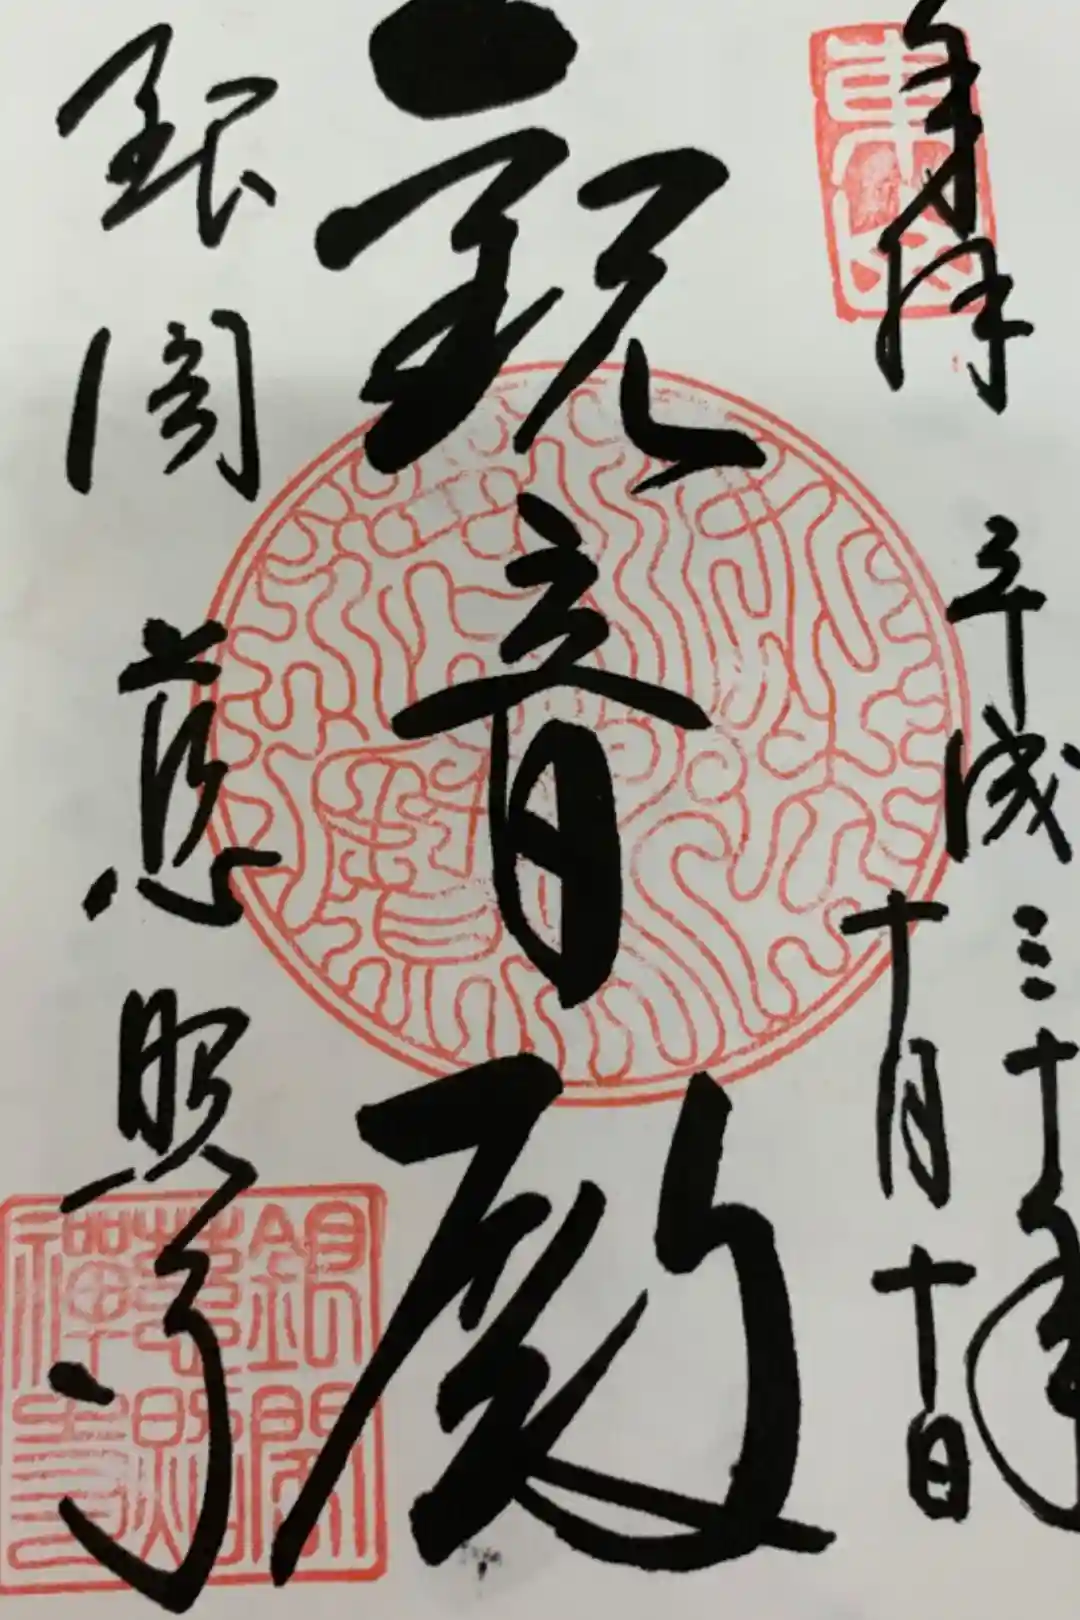 奉拝
東山
平成三十年
十月十日
観音殿
銀閣
慈照寺
銀閣
慈照
禅寺